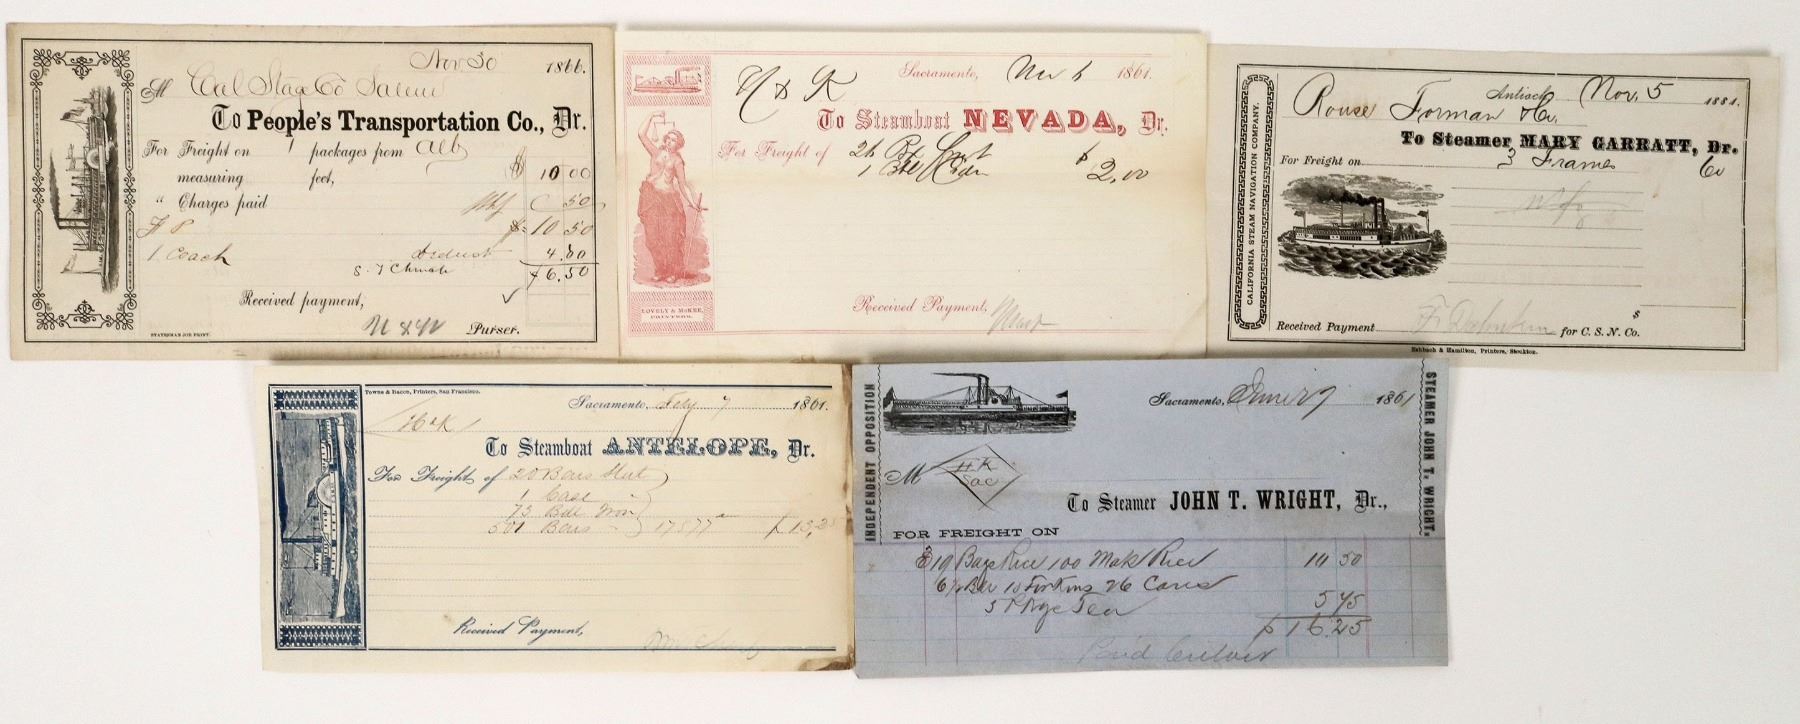 Nov 30 1866.
M Cal Stage Co Salem
To People's Transportation Co., Dr.
For Freight on 1 packages from Alby
measuring feet, $ 10 00
" Charges paid 50
$ 10 50
1 Coach deduct 4.00
$6.50
Received payment,
Purser.
STATESMAN JOB PRINT.
H & K Sacramento, Nov 6 1861.
To Steamboat NEVADA, Dr.
For Freight of 26
1 $ 2,00
LOVELY & McKEE,
PRINTERS.
Received Payment,
CALIFORNIA STEAM NAVIGATION COMPANY.
Antioch Nov. 5 1881.
Rouse Forman Co.
To Steamer MARY GARRATT, Dr.
For Freight on 3 Frames
Received Payment for C. S. N. Co.
$
Eshbach & Hamilton, Printers, Stockton.
Towne & Bacon, Printers, San Francisco.
Sacramento, July 7 1861.
H & K
To Steamboat ANTELOPE, Dr.
For Freight of 20 Bars
1 Case
73 Bdl Iron
501 Bars 17577 $ 15,25
Received Payment,
INDEPENDENT OPPOSITION
STEAMER JOHN T. WRIGHT.
Sacramento, 1861
M H K
Sac
To Steamer JOHN T. WRIGHT, Dr.,
FOR FREIGHT ON
19 Bags Rice 100 Mats Rice 10 50
10 Firkins 26 Cases
5 Tea 5 75
$ 16.25
Paid